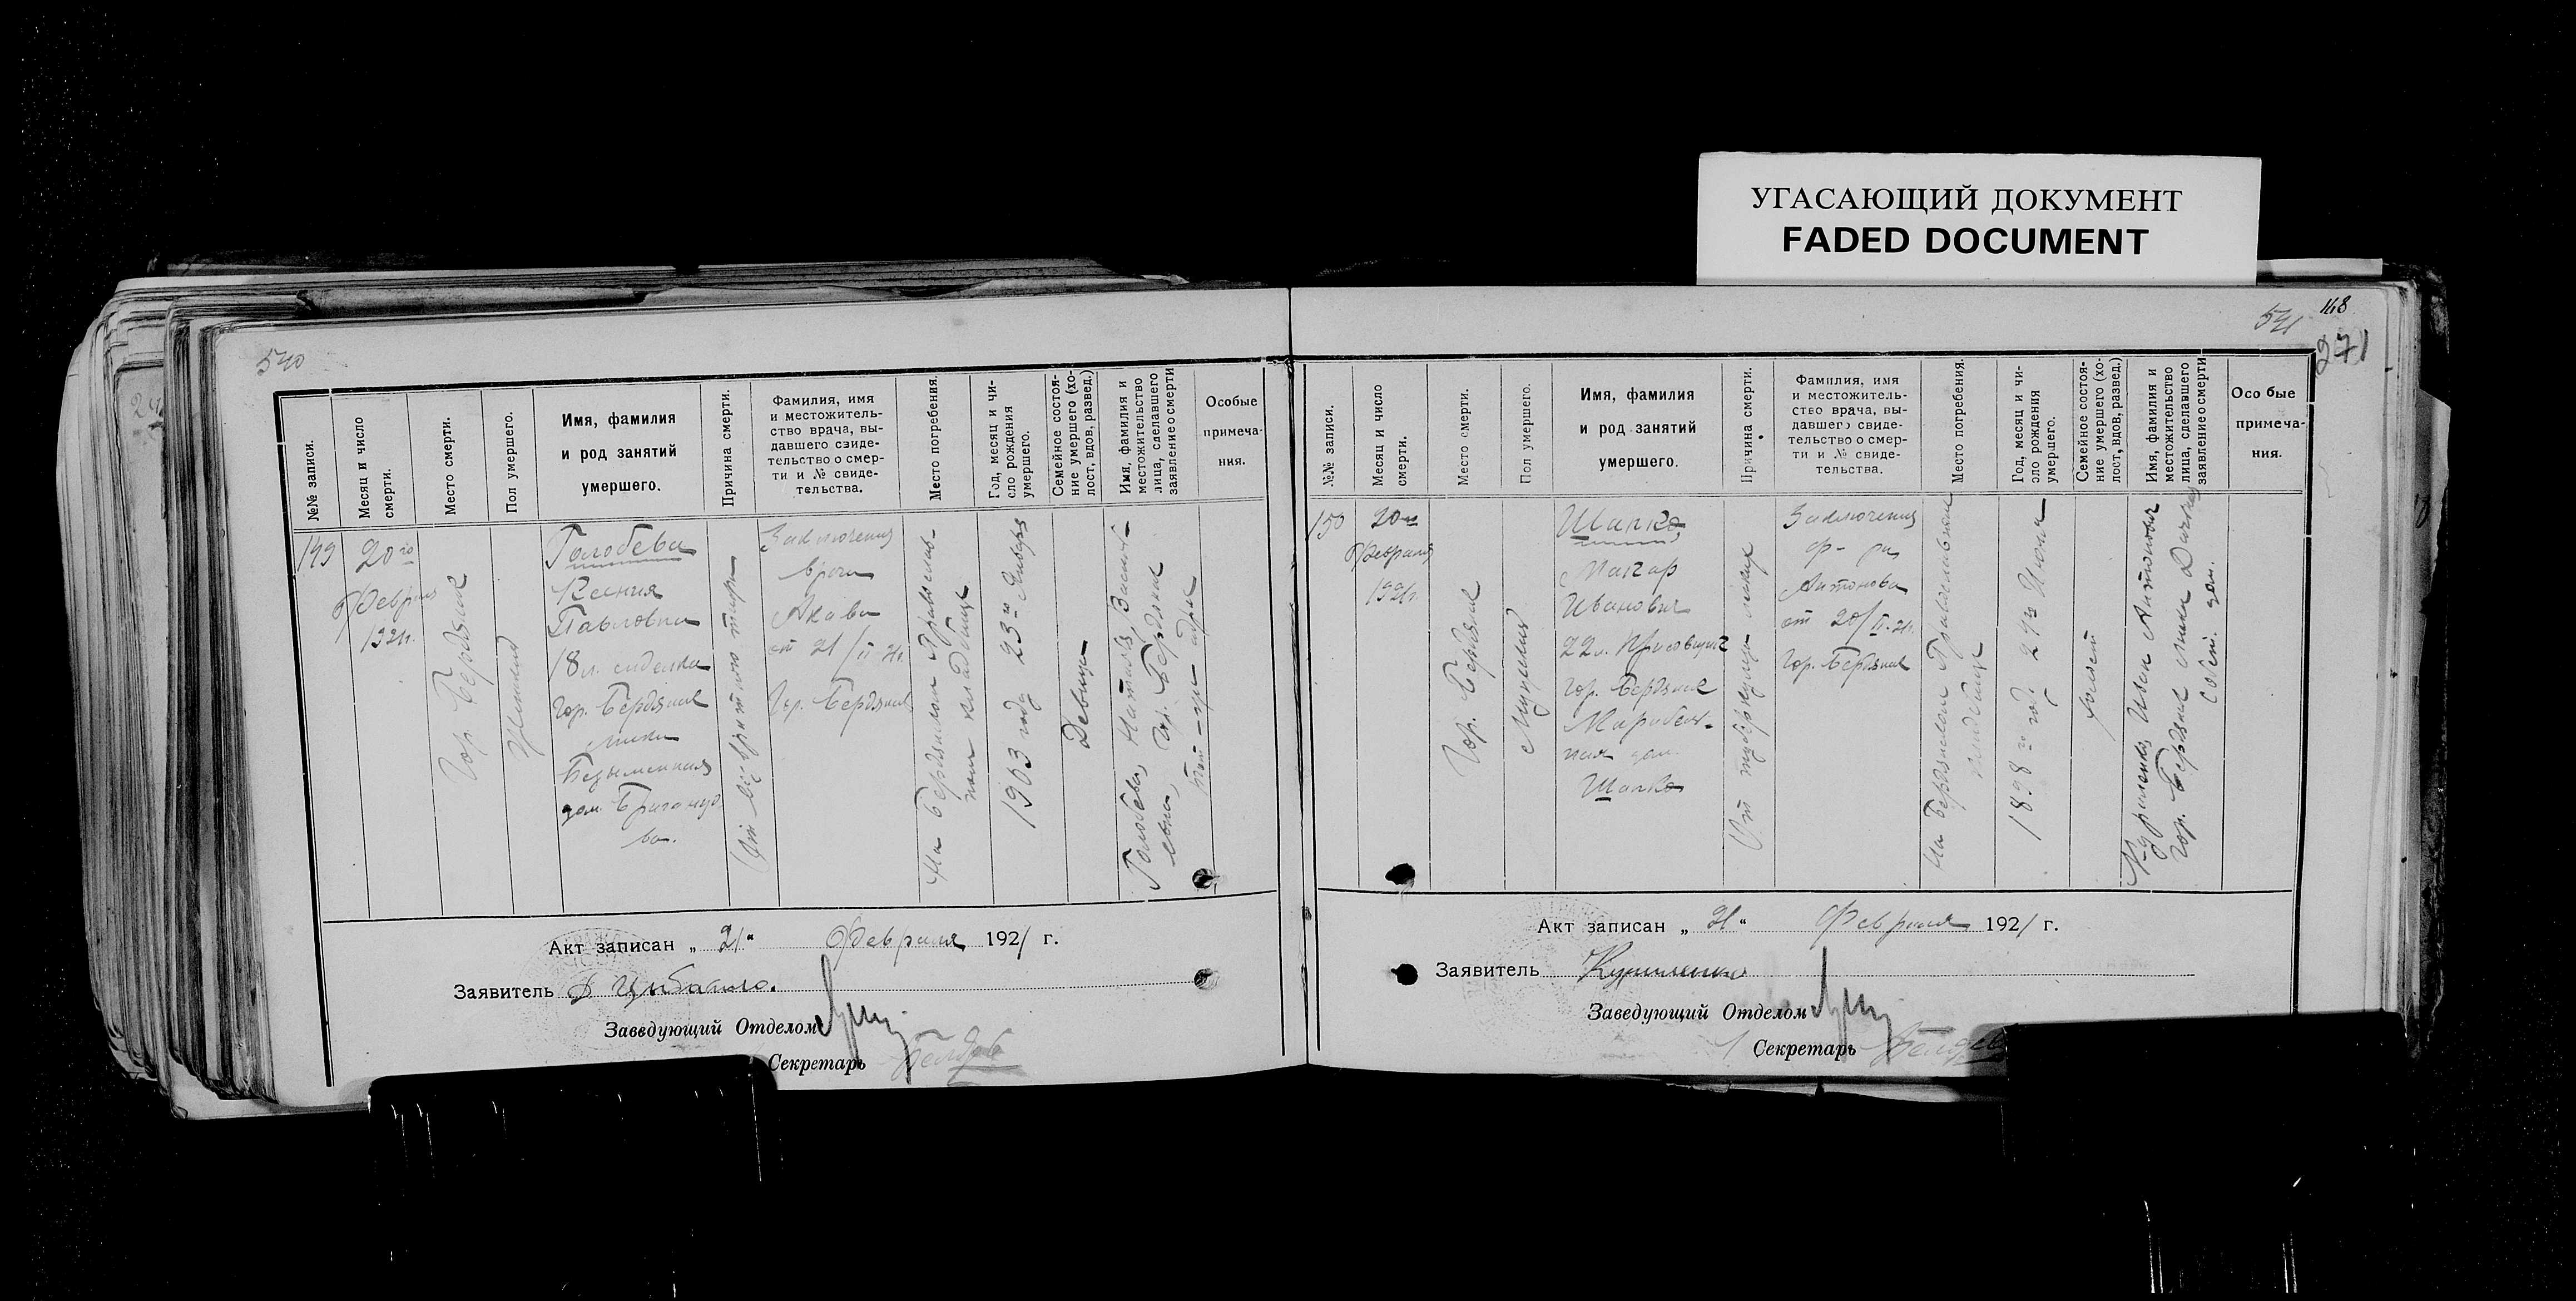 УГАСАЮЩИЙ ДОКУМЕНТ
FADED DOCUMENT
540
№№ записи.
Месяц и число
смерти.
Место смерти.
Пол умершего.
Имя, фамилия
и род занятий
умершего.
Причина смерти.
Фамилия, имя
и местожитель-
ство врача, вы-
давшего свиде-
тельство о смер-
ти и № свиде-
тельства.
Место погребения.
Год, месяц и чи-
сло рождения
умершего.
Семейное состоя-
ние умершего (хо-
лост, вдов, развед.)
Имя, фамилия и
местожительство
лица, сделавшего
заявление о смерти
Особые
примеча-
ния.
149
20го
Февраля
1921г.
Гор. Бердянск
Женский
Голобева
Ксения
Павловна
18 л. сиделка
Гор. Бердянск
Лиски
Безыменная
дом.
От возвратного тифа
Заключения
врача
от 21/II-21г.
Гор. Бердянск
На Бердянском Православ-
ном кладбище
1903 году 23го Января
Девица
Голобева, Наталья Василь-
евна, Гор. Бердянск
Акт записан „ 21 “ Февраля 1921 г.
Заявитель
Заведующий Отделом
Секретарь
541
148
271
№№ записи.
Месяц и число
смерти.
Место смерти.
Пол умершего.
Имя, фамилия
и род занятий
умершего.
Причина смерти.
Фамилия, имя
и местожитель-
ство врача, вы-
давшего свиде-
тельство о смер-
ти и № свиде-
тельства.
Место погребения.
Год, месяц и чи-
сло рождения
умершего.
Семейное состоя-
ние умершего (хо-
лост, вдов, развед.)
Имя, фамилия и
местожительство
лица, сделавшего
заявление о смерти
Особые
примеча-
ния.
150
20го
Февраля
1921г.
Гор. Бердянск
Мужский
Шапка
Макар
Иванович
22 л.
Гор. Бердянск
дом.
Шапка
От туберкулеза легких
Заключения
ф-ра
Антонова
от 20/II-21г.
Гор. Бердянск
На Бердянском Православном
кладбище
1898го году Июля
холост
Иван Антонович
Гор. Бердянск Лиски
собст. дом.
Акт записан „ 21 “ Февраля 1921 г.
Заявитель
Заведующий Отделом
Секретарь